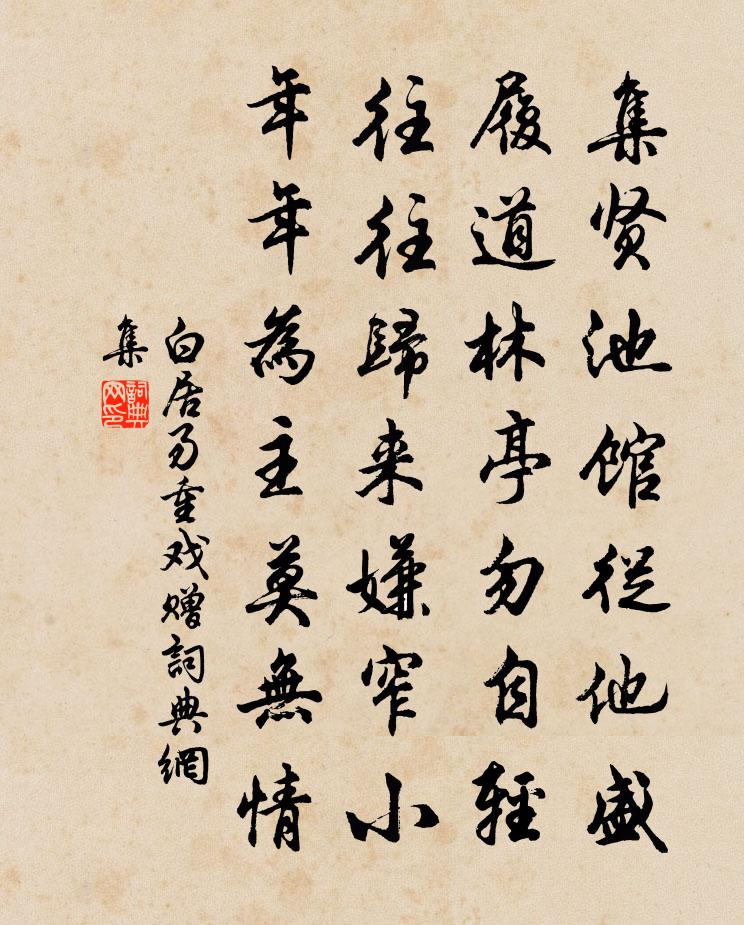 集贤池馆從他盛
履道林亭勿自輕
往往歸来嫌窄小
年年為主莫無情
白居易重戏赠詞典網
集
詞典网印